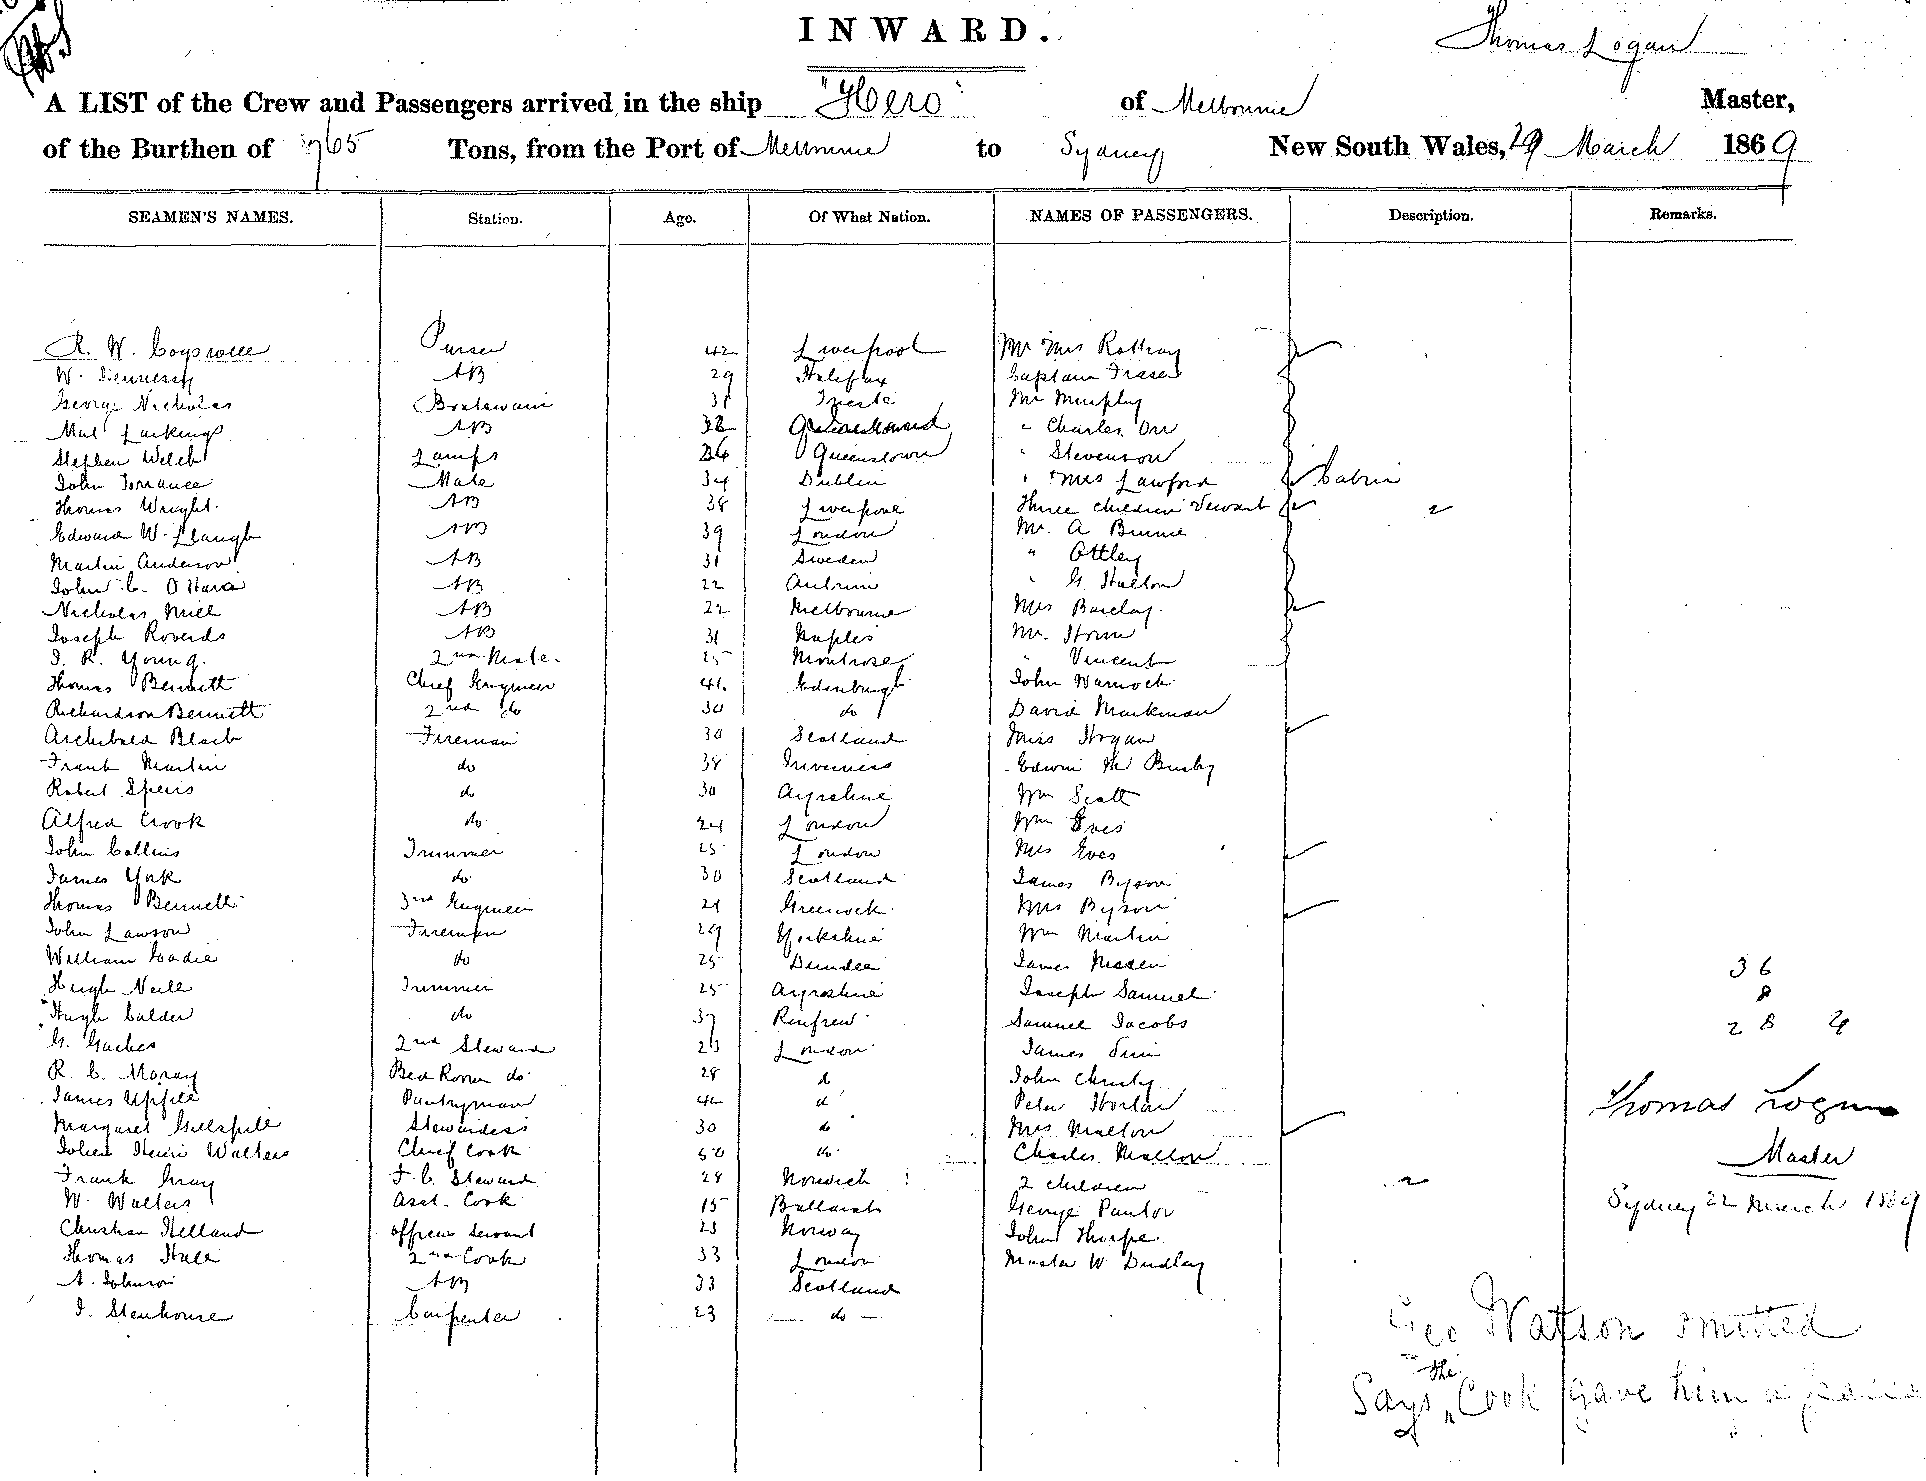 INWARD.
Thomas Logan
A LIST of the Crew and Passengers arrived in the ship "Hero" of Melbourne Master,
of the Burthen of 965 Tons, from the Port of Melbourne to Sydney New South Wales, March 1869
SEAMEN'S NAMES. Station. Age. Of What Nation. NAMES OF PASSENGERS. Description. Remarks.
R. W. Purser 42 Liverpool Mr Mrs Rattray
W. Hennessy AB 29 Halifax Captain Fraser
George Nicholas Boatswain 31 Trieste Mr Murphy
Larkings AB " Charles Orr
Stephen Welch Lamps Queenstown " Stevenson
John Torrance Mate 34 Dublin " Mrs Lawford Cabin
Thomas Wright AB 38 Liverpool Three children Servant "
Edward W. AB 39 London Mr. A Binnie
Martin Anderson AB 31 Sweden " Ottley
John C. O'Hara AB 22 Antrim " G.
Nicholas AB 22 Melbourne Mrs Barclay
Joseph AB 31 Naples Mr.
J. R. Young. 2nd Mate. 25 Montrose " Vincent
Thomas Bennett Chief Engineer 41 Edinburgh John Warnock
Richardson Bennett 2nd do 30 do David Markman
Archibald Black Fireman 30 Scotland Miss Hogan
Frank Martin do 38 Inverness Edwin
Robert Speirs do 30 Ayrshire Wm Scott
Alfred Crook do 24 London Wm Eves
John Collins Trimmer 25 London Mrs Eves
James York do 30 Scotland James Byson
Thomas Bennett 3rd Engineer 21 Greenock Mrs Byson
John Lawson Fireman 29 Yorkshire Wm Martin
William do 25 Dundee James
Hugh Neill Trimmer 25 Ayrshire Joseph Samuel
Hugh Calder do 37 Renfrew Samuel Jacobs
G. 2nd Steward 23 London James
R. C. Moray Bed Room do 28 do John Christy
James Upfill Pantryman do Peter
Margaret Gillespie Stewardess 30 do Mrs Mallon
Walters Chief Cook do Charles Mallon
Frank Gray F. C. Steward 28 Norwich 2 children "
W. Walters Asst. Cook 15 Ballarat George
Christian Helland Officers Servant 23 Norway John Thorpe
Thomas 2nd Cook 33 London Master W Dudley
A. Johnson AB 33 Scotland
J. Stenhouse Carpenter 23 do
36
8
28
Thomas Logan
Master
Sydney 22 March 1869
Geo Watson omitted
Says the Cook gave him a